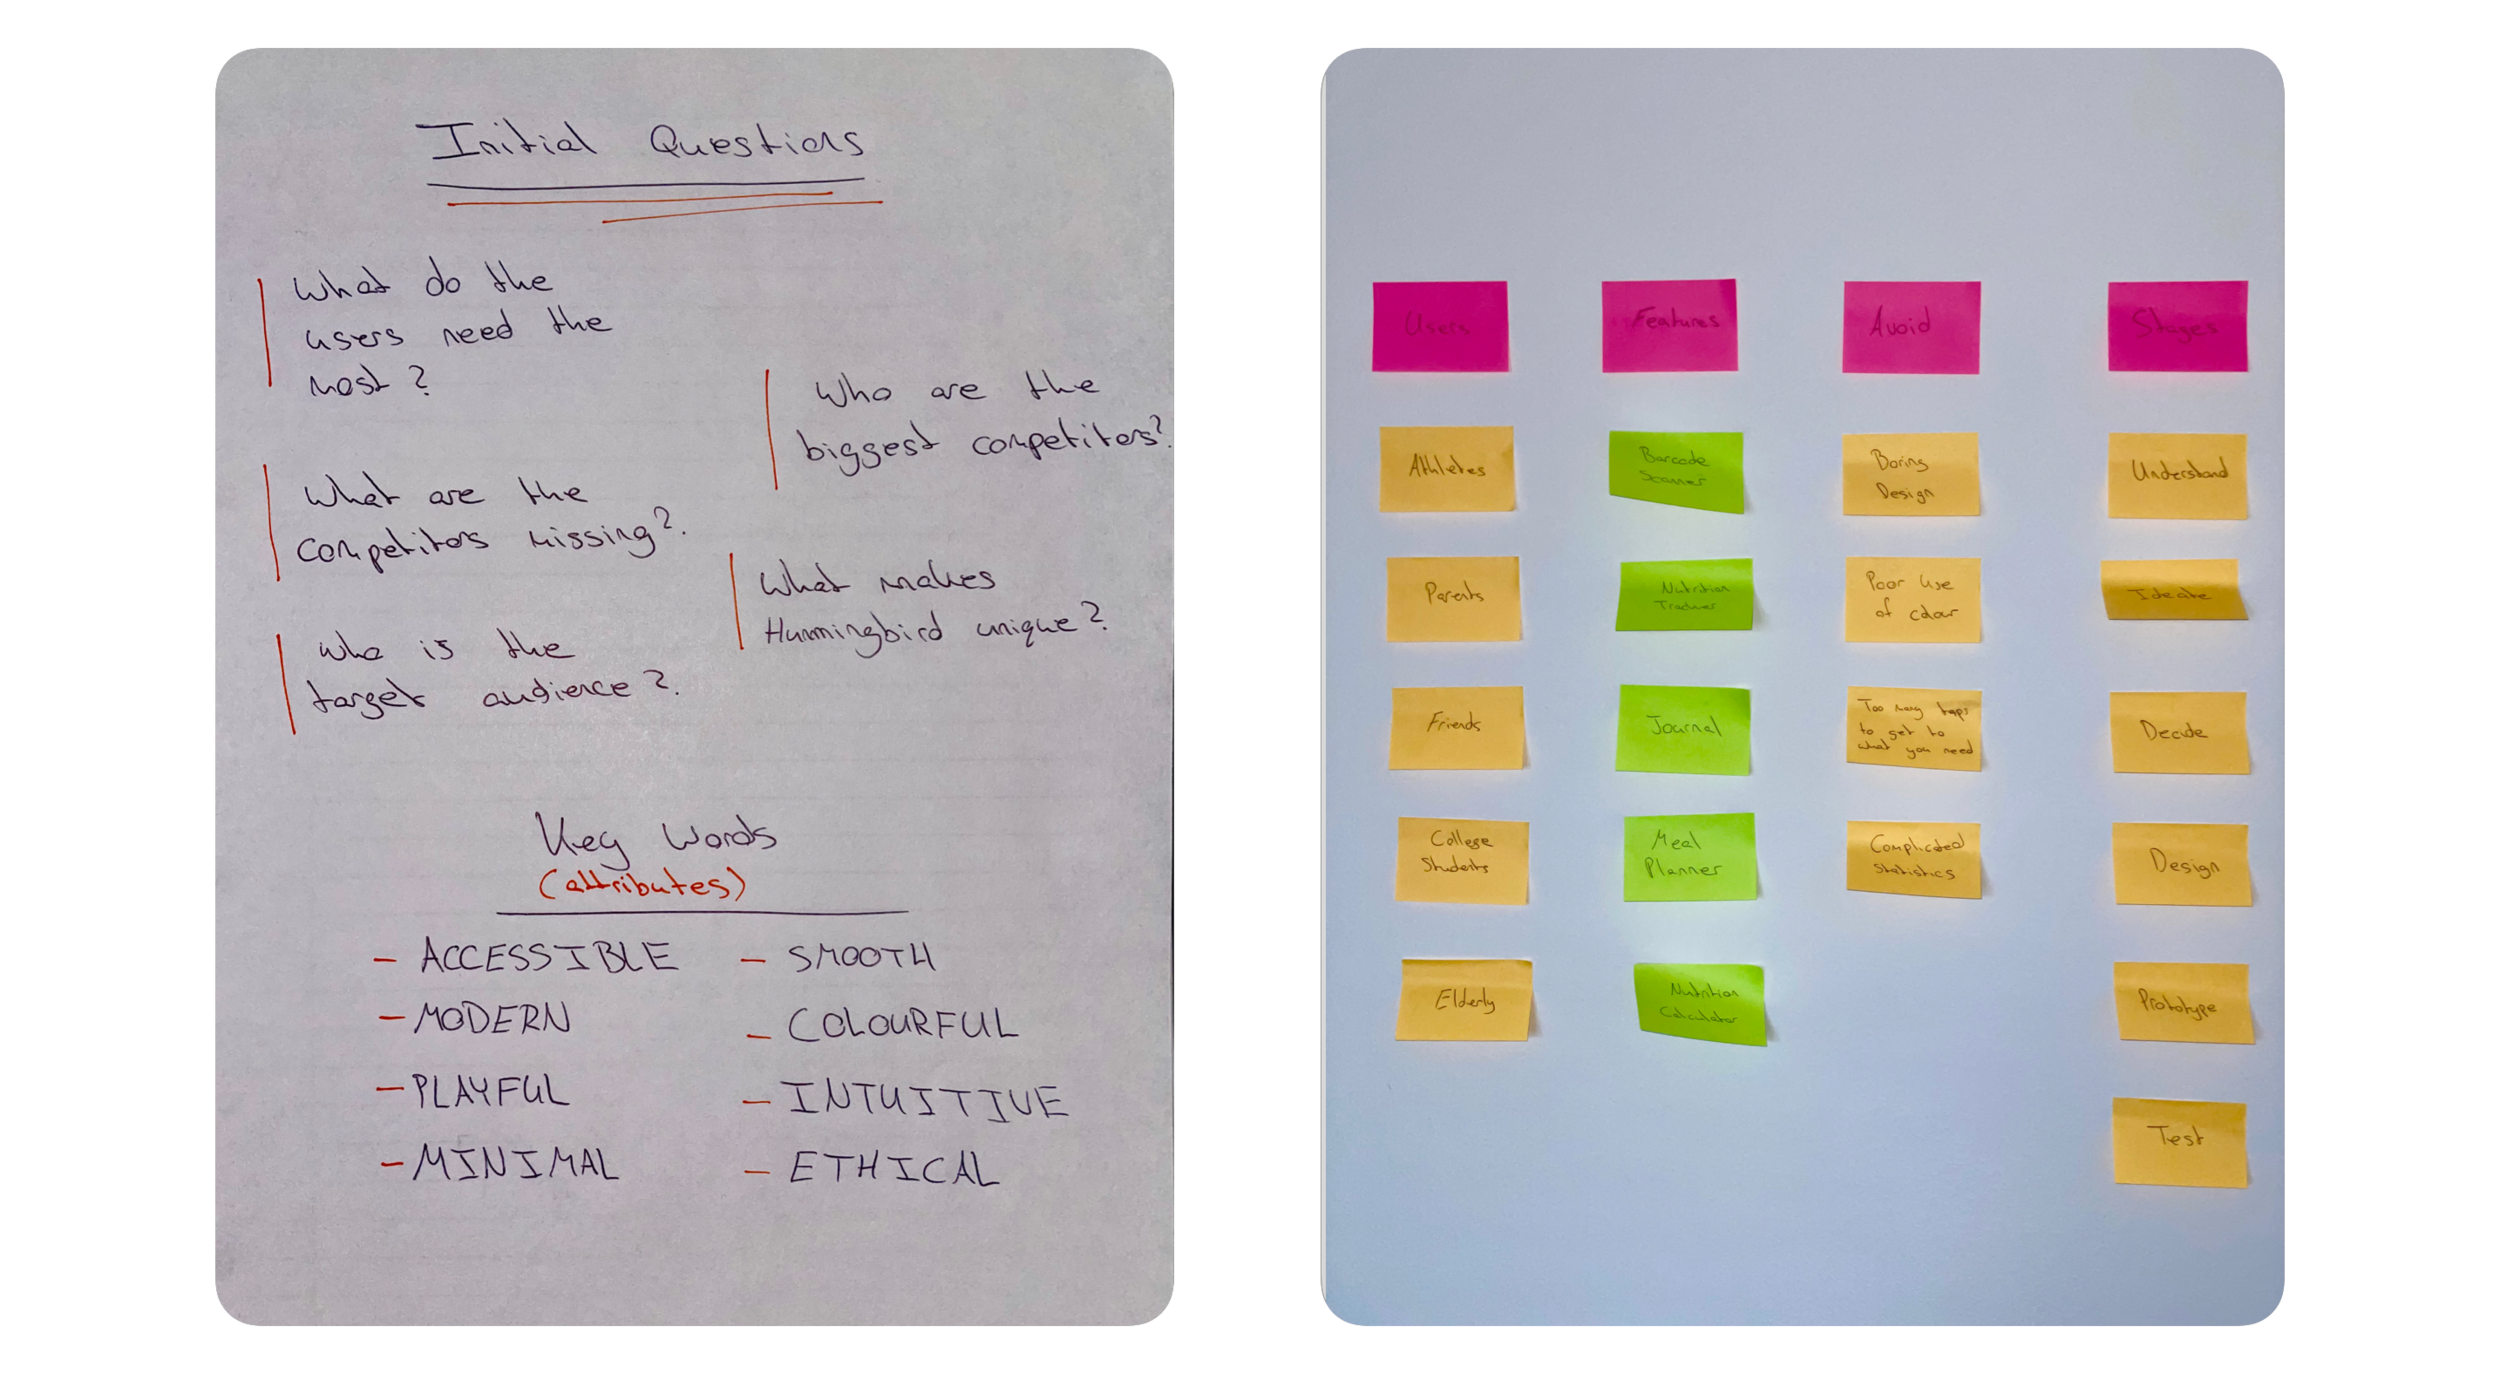 Initial Questions
What do the
users need the
most?
Who are the
biggest competitors?
What are the
competitors missing?
What makes
Hummingbird unique?
Who is the
target audience?
Key Words
(attributes)
- ACCESSIBLE
- MODERN
- PLAYFUL
- MINIMAL
- SMOOTH
- COLOURFUL
- INTUITIVE
- ETHICAL
Users
Athletes
Parents
Friends
College
Students
Elderly
Features
Barcode
Scanner
Nutrition
Tracker
Journal
Meal
Planner
Nutrition
Calculator
Avoid
Boring
Design
Poor Use
of colour
Too many taps
to get to
what you need
Complicated
Statistics
Stages
Understand
Ideate
Decide
Design
Prototype
Test